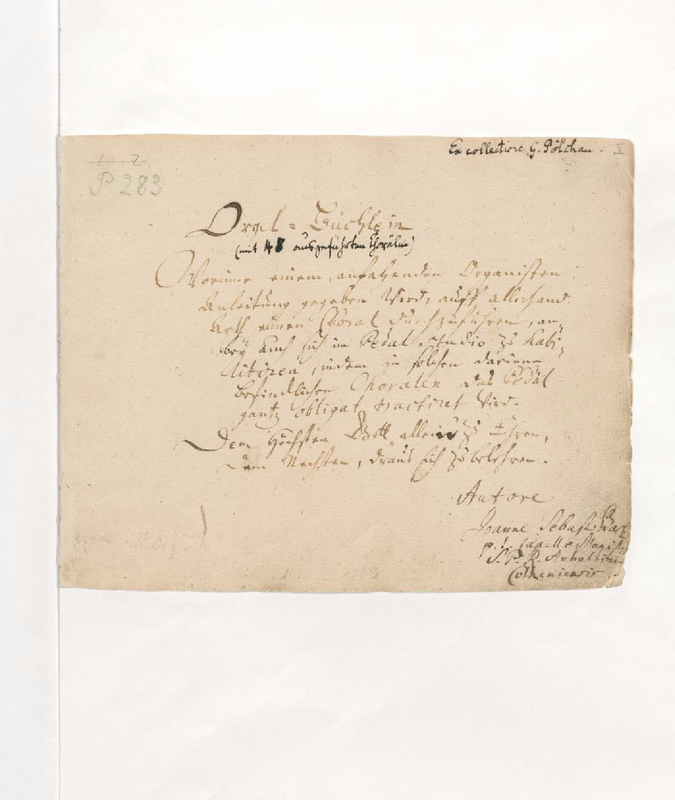 Ex collectione G. Pölchau.
P 283
Orgel-Büchlein
(mit 48 ausgeführten Chorälen)
Worinne einem anfahenden Organisten
Anleitung gegeben wird, auff allerhand
Arth einen Choral durchzuführen, an-
bey auch sich im Pedal studio zu habi-
litiren, indem in solchen darinne
befindlichen Choralen das Pedal
gantz obligat tractiret wird.
Dem Höchsten Gott allein zu Ehren,
Dem Nechsten, draus sich zu belehren.
Autore
Joanne Sebast. Bach
p. t. Capellae Magistri
S. P. R. Anhaltini-
Cotheniensis